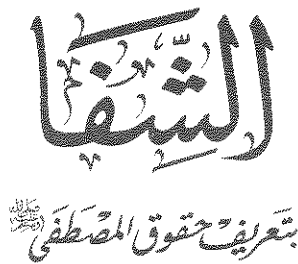 الشِّفَا
بتَعريفِ حقوق المُصْطَفَى ﷺ